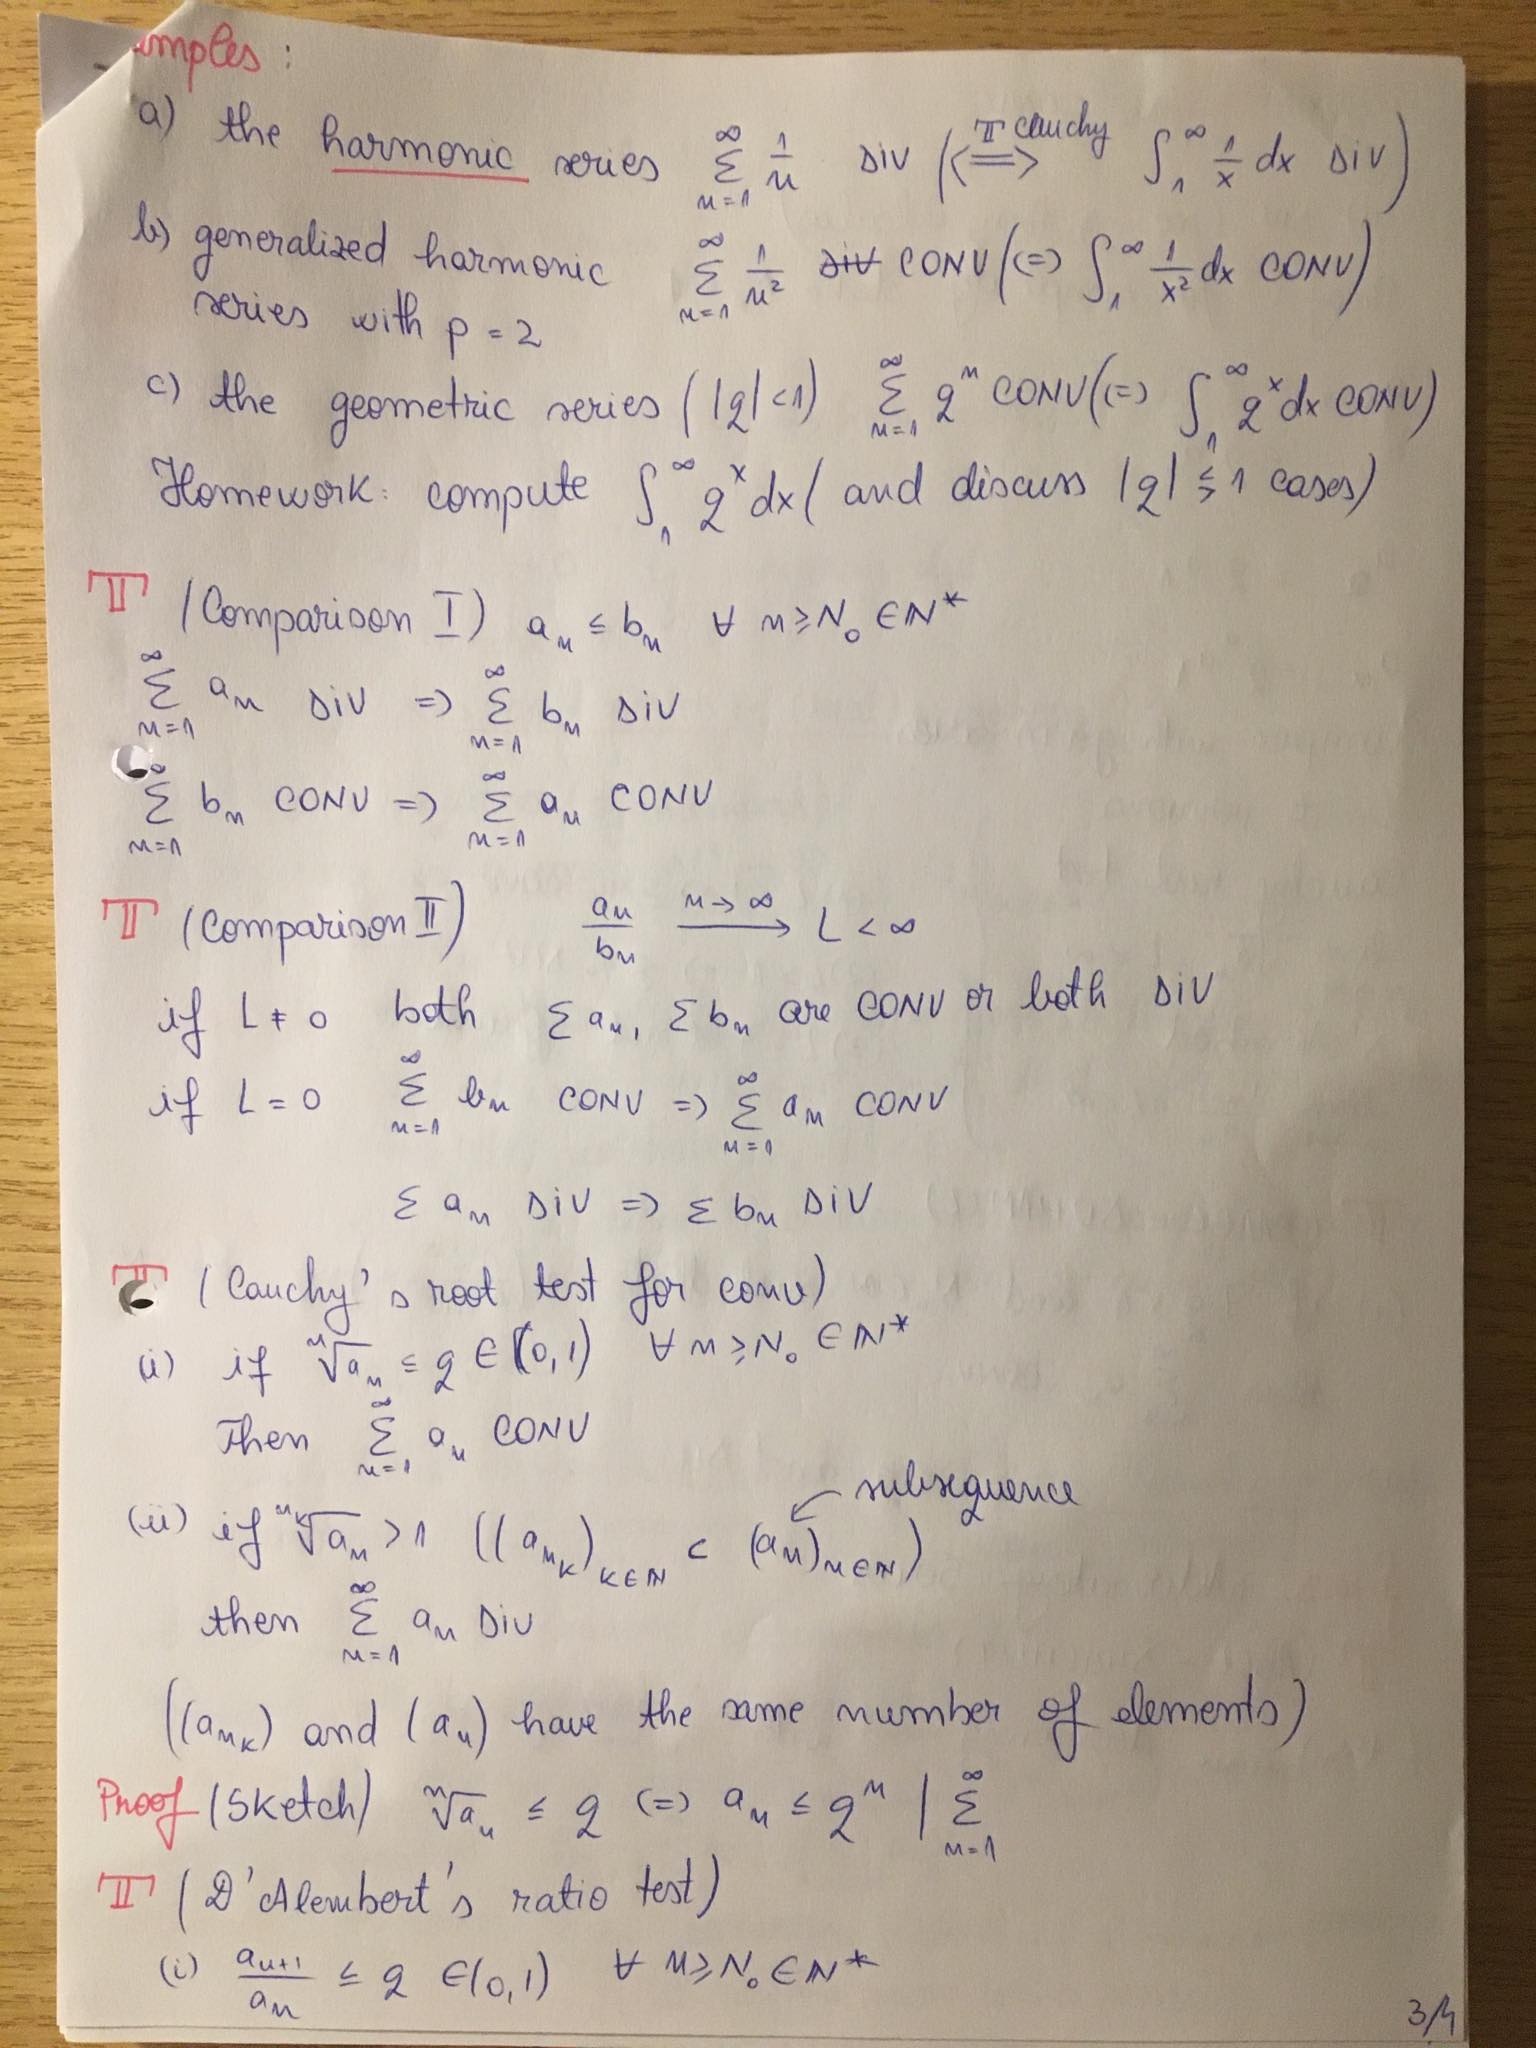 amples :
a) the harmonic series ∞ Σ n=1 1/n DIV (<=> T Cauchy ∫₁^∞ 1/x dx DIV)
b) generalized harmonic series with p = 2 ∞ Σ n=1 1/n² DIV CONV (<=> ∫₁^∞ 1/x² dx CONV)
c) the geometric series (|q|<1) ∞ Σ n=1 qⁿ CONV (<=> ∫₁^∞ qˣ dx CONV)
Homework: compute ∫₁^∞ qˣ dx ( and discuss |q| ⋚ 1 cases)
T (Comparison I) aₙ ≤ bₙ ∀ n ≥ N₀ ∈ N*
∞ Σ n=1 aₙ DIV => ∞ Σ n=1 bₙ DIV
∞ Σ n=1 bₙ CONV => ∞ Σ n=1 aₙ CONV
T (Comparison II) aₙ/bₙ n→∞ ⟶ L < ∞
if L ≠ 0 both Σ aₙ, Σ bₙ are CONV or both DIV
if L = 0 ∞ Σ n=1 bₙ CONV => ∞ Σ n=1 aₙ CONV
Σ aₙ DIV => Σ bₙ DIV
T (Cauchy's root test for conv)
(i) if ⁿ√aₙ ≤ q ∈ (0,1) ∀ n ≥ N₀ ∈ N*
Then ∞ Σ n=1 aₙ CONV
subsequence
(ii) if ⁿₖ√aₙ > 1 ((a_{n_k})_{k∈N} ⊂ (aₙ)_{n∈N})
then ∞ Σ n=1 aₙ DIV
((a_{n_k}) and (aₙ) have the same number of elements)
Proof (Sketch) ⁿ√aₙ ≤ q (=) aₙ ≤ qⁿ | ∞ Σ n=1
T (D'Alembert's ratio test)
(i) aₙ₊₁/aₙ ≤ q ∈ (0,1) ∀ n ≥ N₀ ∈ N*
3/4